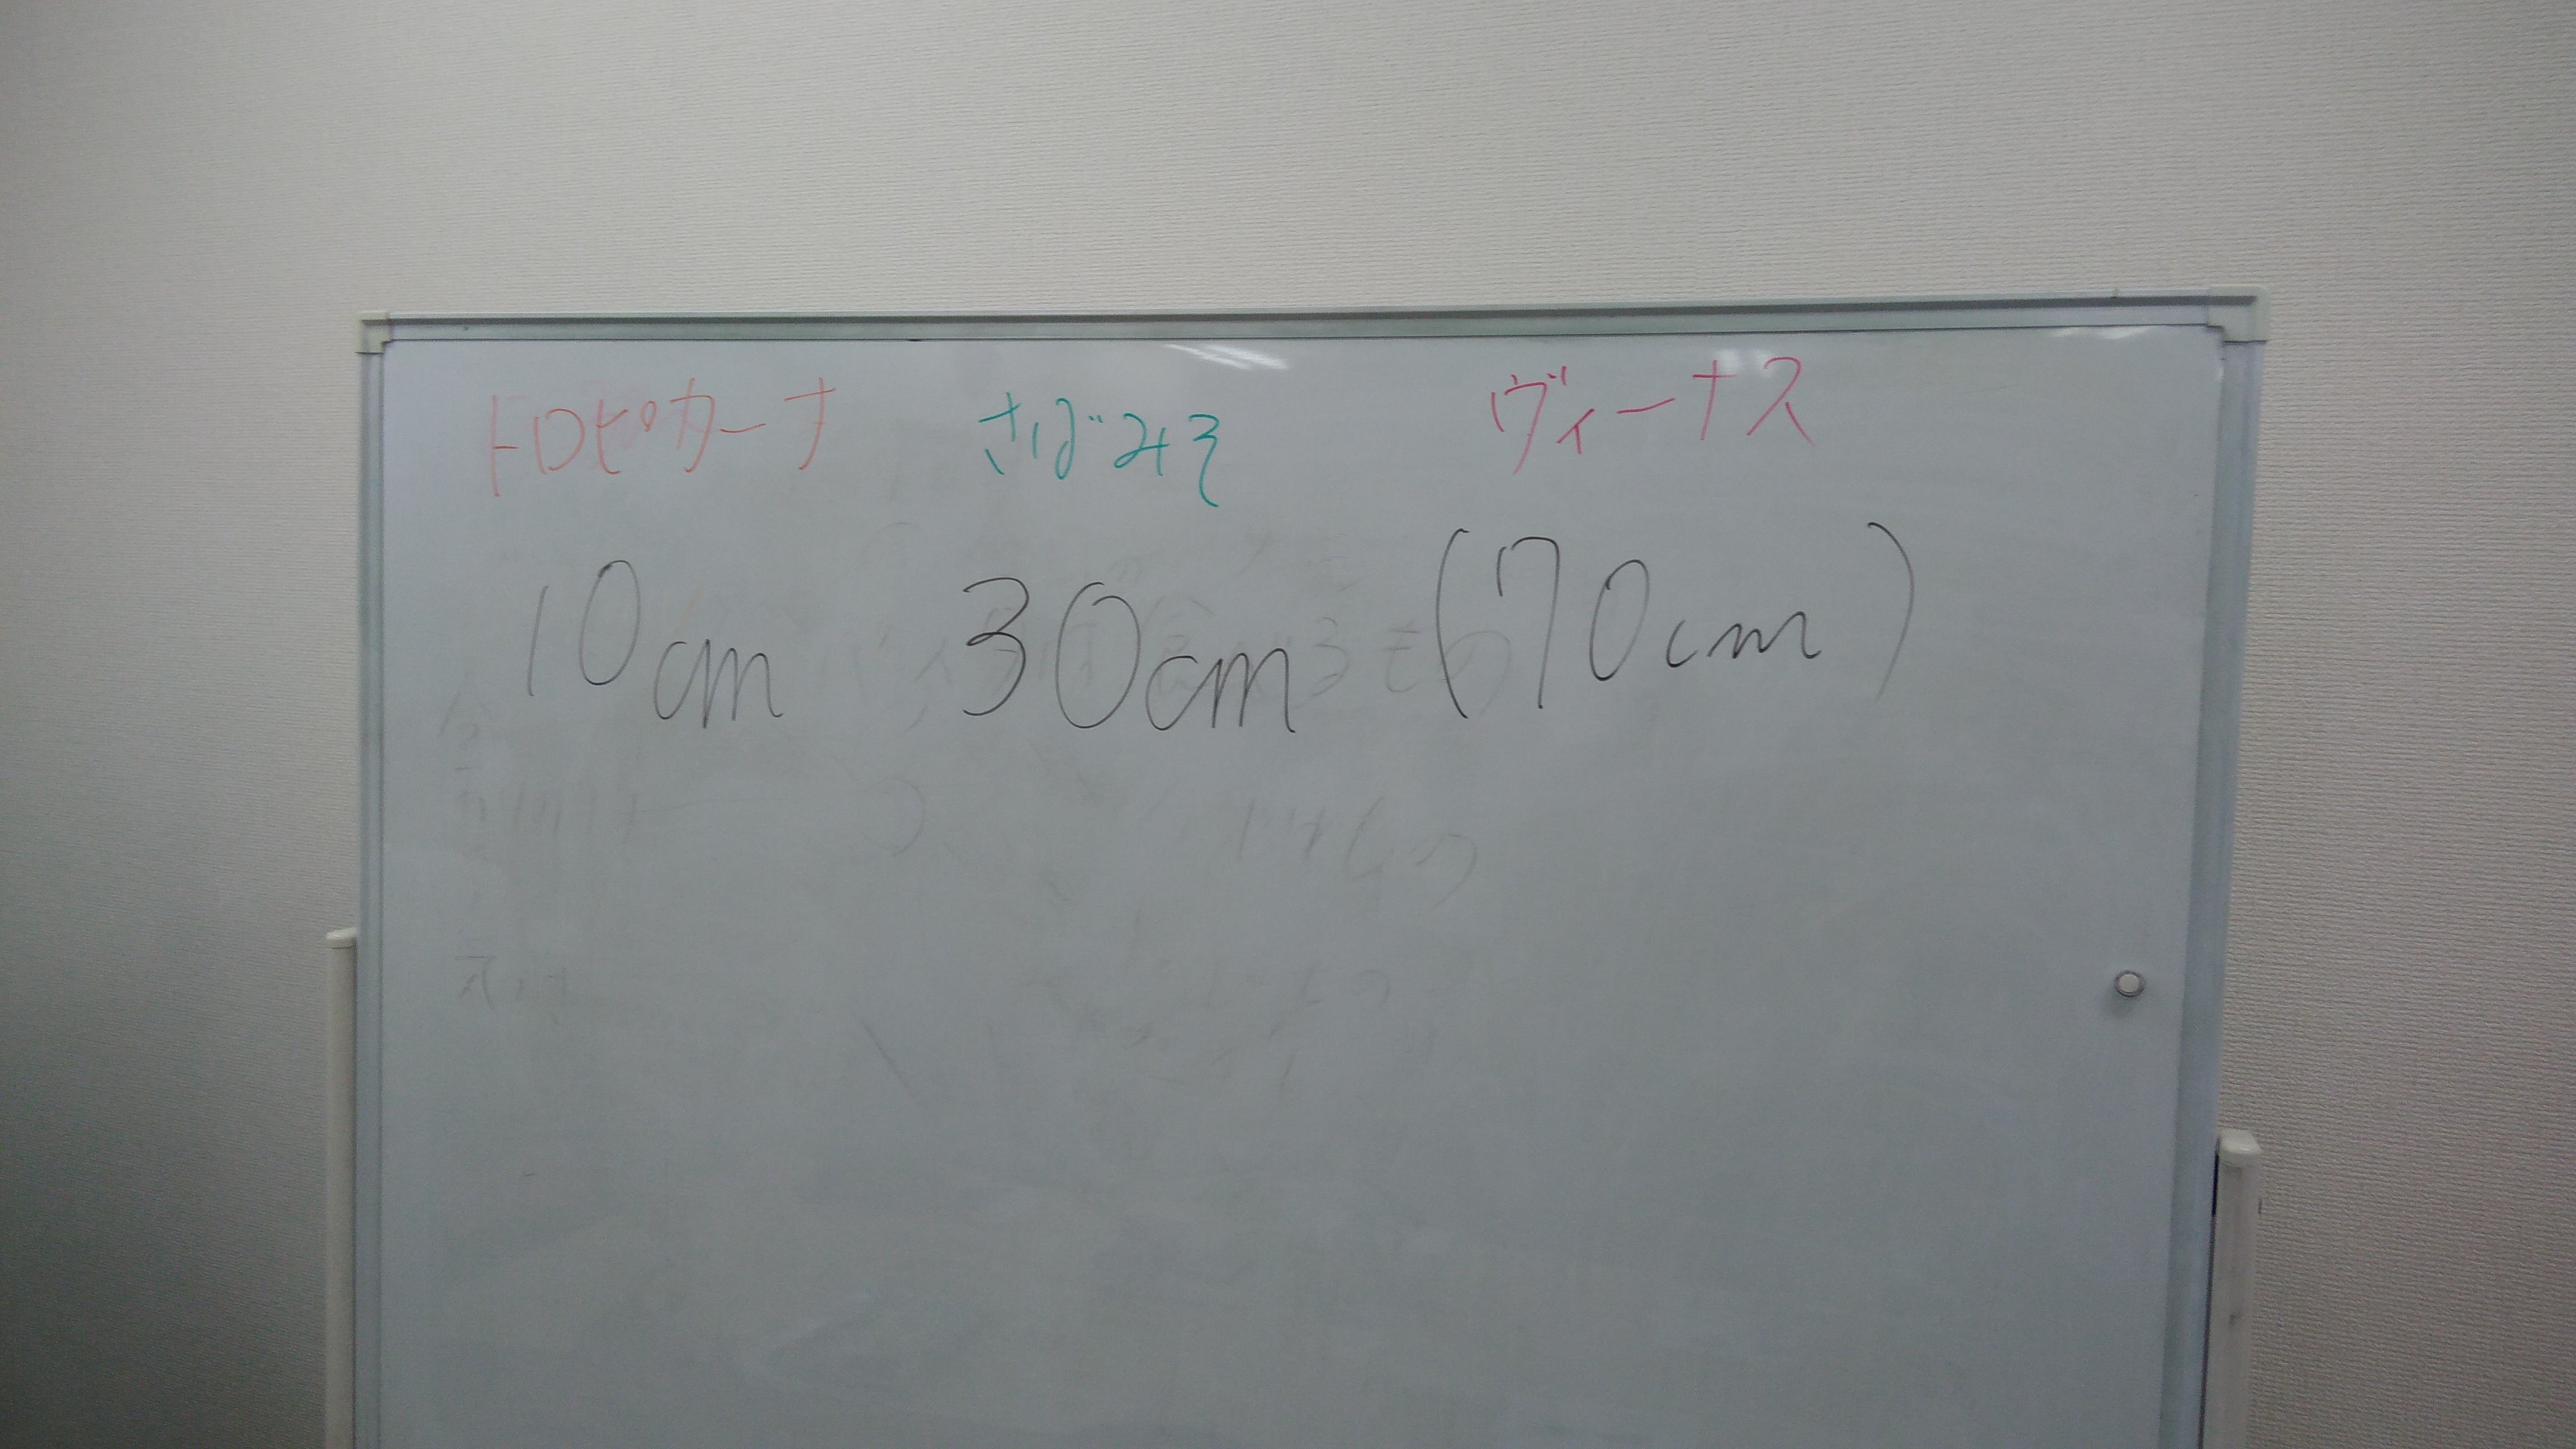 トロピカーナ さばみそ ヴィーナス
10cm 30cm (70cm)